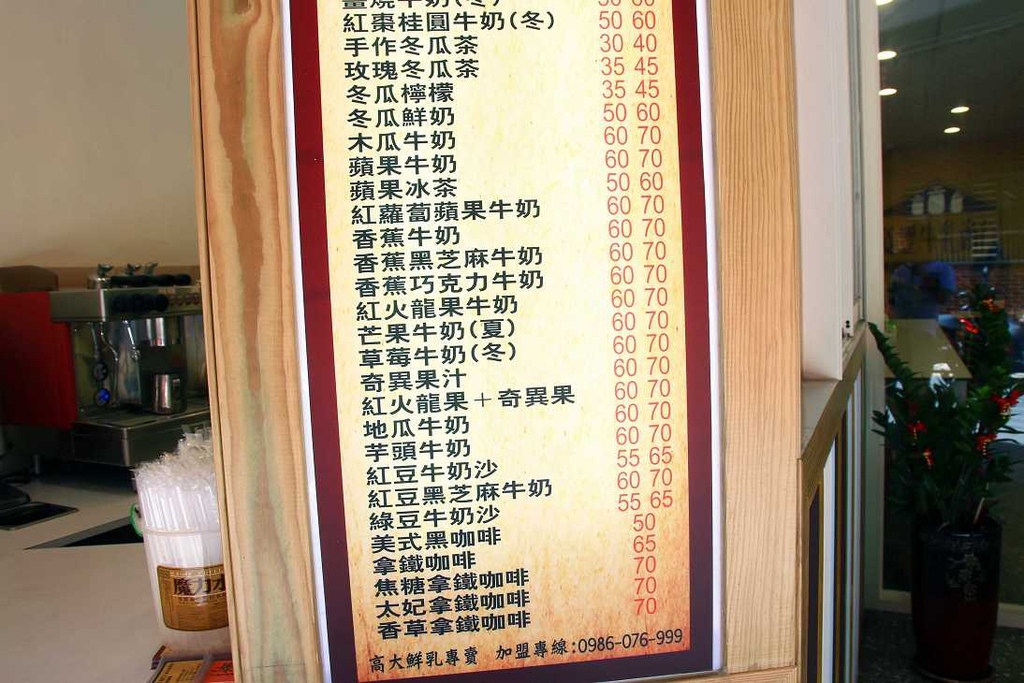 牛奶(冬) 50 60
紅棗桂圓牛奶(冬) 50 60
手作冬瓜茶 30 40
玫瑰冬瓜茶 35 45
冬瓜檸檬 35 45
冬瓜鮮奶 50 60
木瓜牛奶 60 70
蘋果牛奶 60 70
蘋果冰茶 50 60
紅蘿蔔蘋果牛奶 60 70
香蕉牛奶 60 70
香蕉黑芝麻牛奶 60 70
香蕉巧克力牛奶 60 70
紅火龍果牛奶 60 70
芒果牛奶(夏) 60 70
草莓牛奶(冬) 60 70
奇異果汁 60 70
紅火龍果＋奇異果 60 70
地瓜牛奶 60 70
芋頭牛奶 60 70
紅豆牛奶沙 55 65
紅豆黑芝麻牛奶 60 70
綠豆牛奶沙 55 65
美式黑咖啡 50
拿鐵咖啡 65
焦糖拿鐵咖啡 70
太妃拿鐵咖啡 70
香草拿鐵咖啡 70
高大鮮乳專賣 加盟專線:0986-076-999
魔力